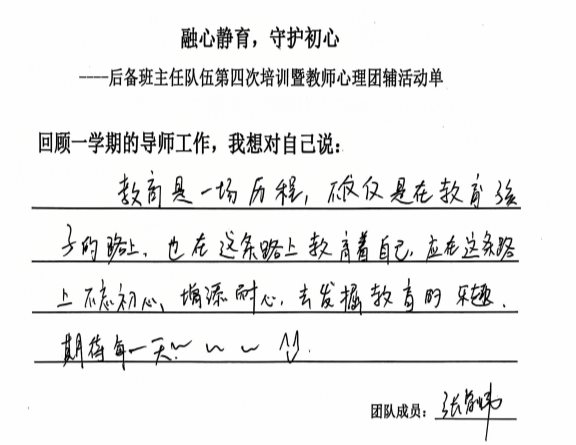 融心静育，守护初心
----后备班主任队伍第四次培训暨教师心理团辅活动单
回顾一学期的导师工作，我想对自己说：
教育是一场历程，不仅仅是在教育孩
子的路上，也在这条路上教育着自己，应在这条路
上不忘初心、增添耐心，去发掘教育的乐趣．
期待每一天！~ ~ ~
团队成员：张